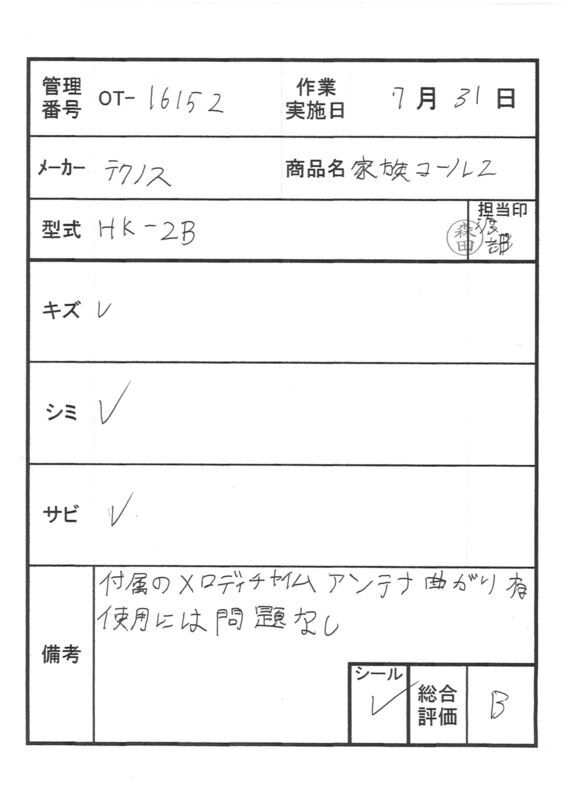 管理番号 OT-16152 作業実施日 7月31日
メーカー テクノス 商品名 家族コール2
型式 HK-2B 担当印 森田 渡部
キズ レ
シミ レ
サビ レ
付属のメロディチャイム アンテナ曲がり有
使用には問題なし
備考
シール レ 総合評価 B